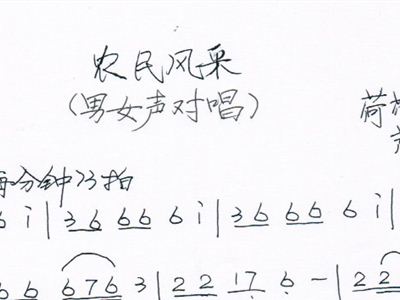 农民风采
(男女声对唱)
荷
每分钟73拍
6 i | 36 66 6 i | 36 66 6 i |
6 676 3 | 22 17 6 - | 22